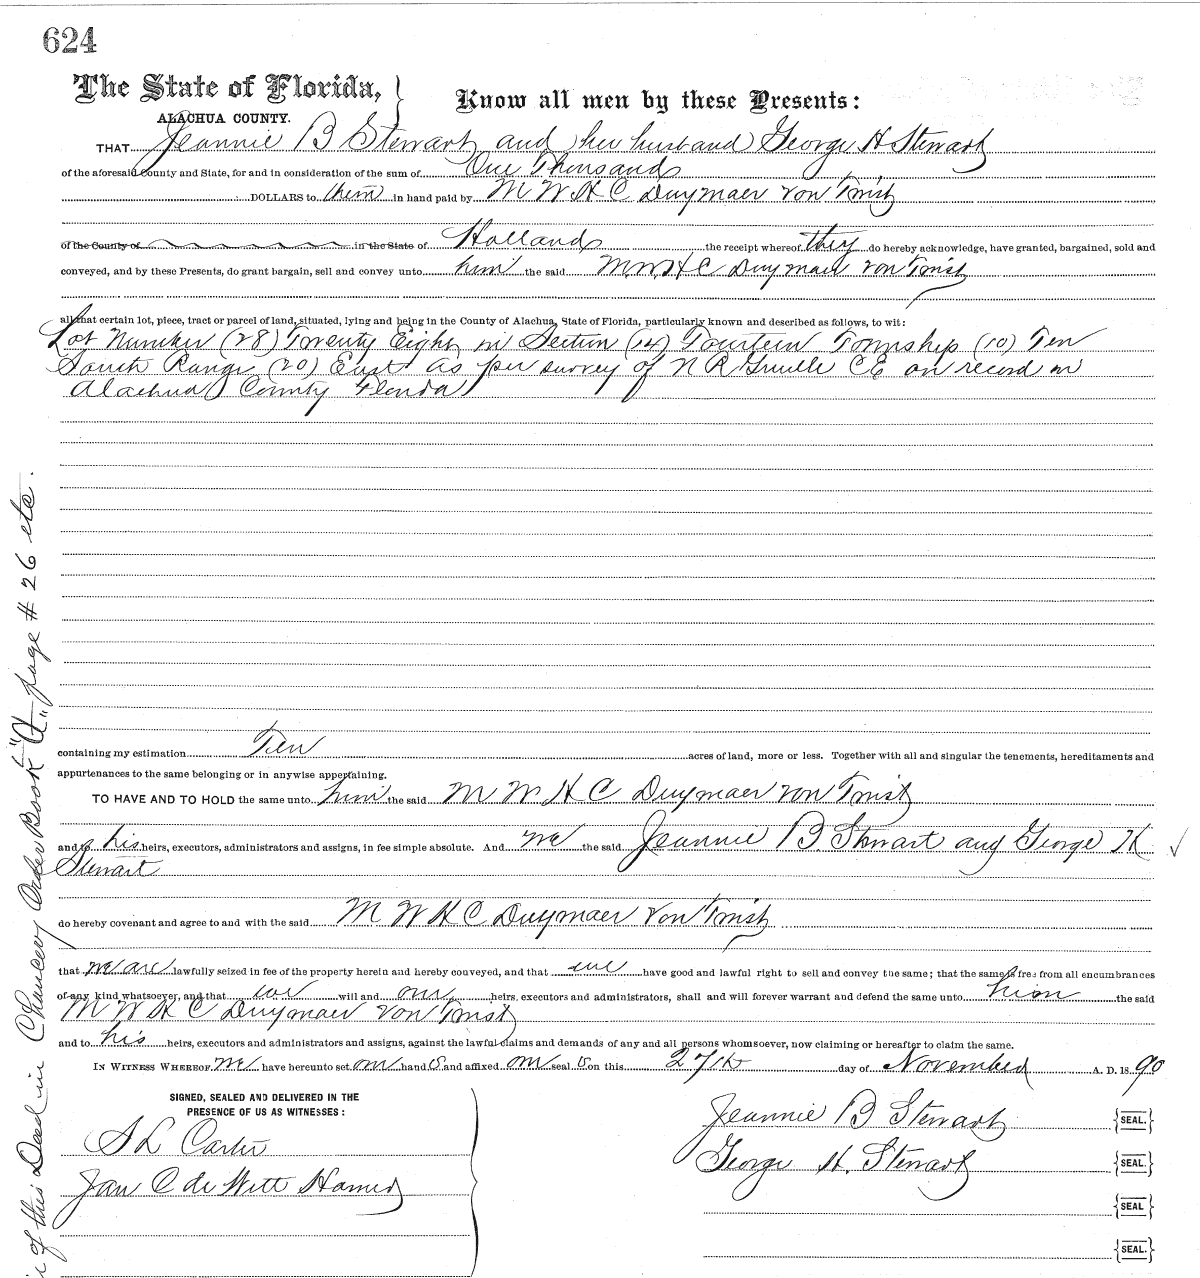 624
The State of Florida,
ALACHUA COUNTY.
Know all men by these Presents:
THAT Jeannie B Stewart and her husband George H Stewart
of the aforesaid County and State, for and in consideration of the sum of One Thousand
DOLLARS to them in hand paid by M W H C Duymaer von Twist
of the County of in the State of Holland the receipt whereof they do hereby acknowledge, have granted, bargained, sold and
conveyed, and by these Presents, do grant bargain, sell and convey unto him the said M W H C Duymaer von Twist
all that certain lot, piece, tract or parcel of land, situated, lying and being in the County of Alachua, State of Florida, particularly known and described as follows, to wit:
Lot Number (28) Twenty Eight in Section (14) Fourteen Township (10) Ten
South Range (20) East as per survey of N R Gruelle C E on record in
Alachua County Florida
containing my estimation Ten acres of land, more or less. Together with all and singular the tenements, hereditaments and
appurtenances to the same belonging or in anywise appertaining.
TO HAVE AND TO HOLD the same unto him the said M W H C Duymaer von Twist
and to his heirs, executors, administrators and assigns, in fee simple absolute. And we the said Jeannie B Stewart and George H
Stewart
do hereby covenant and agree to and with the said M W H C Duymaer von Twist
that we are lawfully seized in fee of the property herein and hereby conveyed, and that we have good and lawful right to sell and convey the same; that the same is free from all encumbrances
of any kind whatsoever, and that we will and our heirs, executors and administrators, shall and will forever warrant and defend the same unto him the said
M W H C Duymaer von Twist
and to his heirs, executors and administrators and assigns, against the lawful claims and demands of any and all persons whomsoever, now claiming or hereafter to claim the same.
IN WITNESS WHEREOF we have hereunto set our hand s and affixed our seal s on this 27th day of November A. D. 18 90
SIGNED, SEALED AND DELIVERED IN THE
PRESENCE OF US AS WITNESSES:
S L Carter
Jan C de Witt Hamer
Jeannie B Stewart {SEAL.}
George H. Stewart {SEAL.}
{SEAL}
{SEAL.}
of this Deed in Chancery Order Book "A" page # 26 etc.